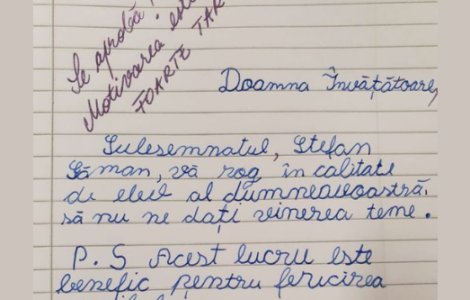 Se aprobă!
Motivarea este
FOARTE TAR
Doamna Învățătoare,
Subsemnatul, Ștefan
Șăman, vă rog în calitate
de elev al dumneavoastră,
să nu ne dați vinerea teme.
P.S Acest lucru este
benefic pentru fericirea